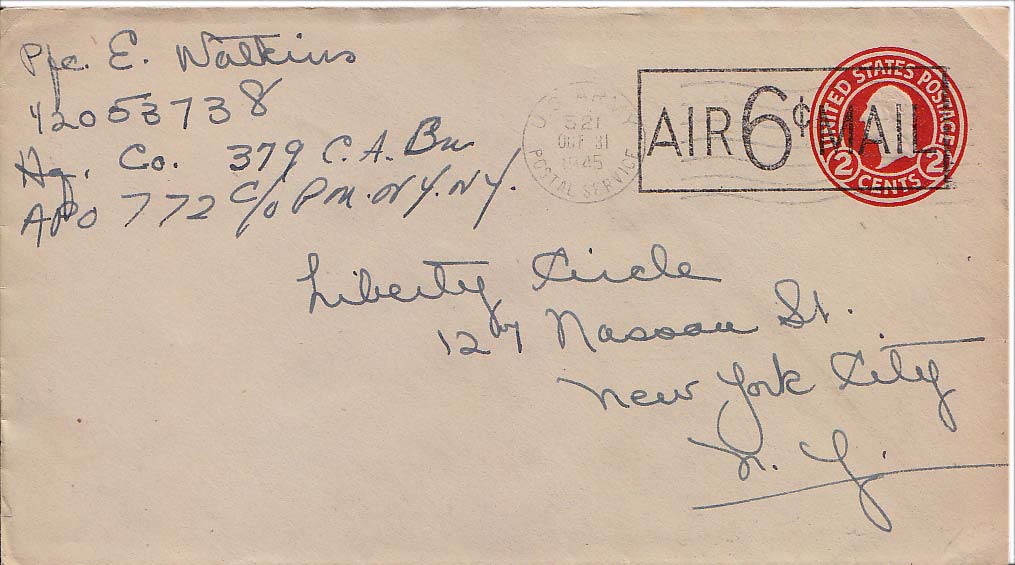 Pfc. E. Watkins
42053738
Hq. Co. 379 C.A. Bn
APO 772 c/o P.M. N.Y. N.Y.
U.S. ARMY
321
OCT 31
1945
POSTAL SERVICE
AIR 6¢ MAIL
UNITED STATES POSTAGE
2 CENTS 2
Liberty Circle
127 Nassau St.
New York City
N. Y.